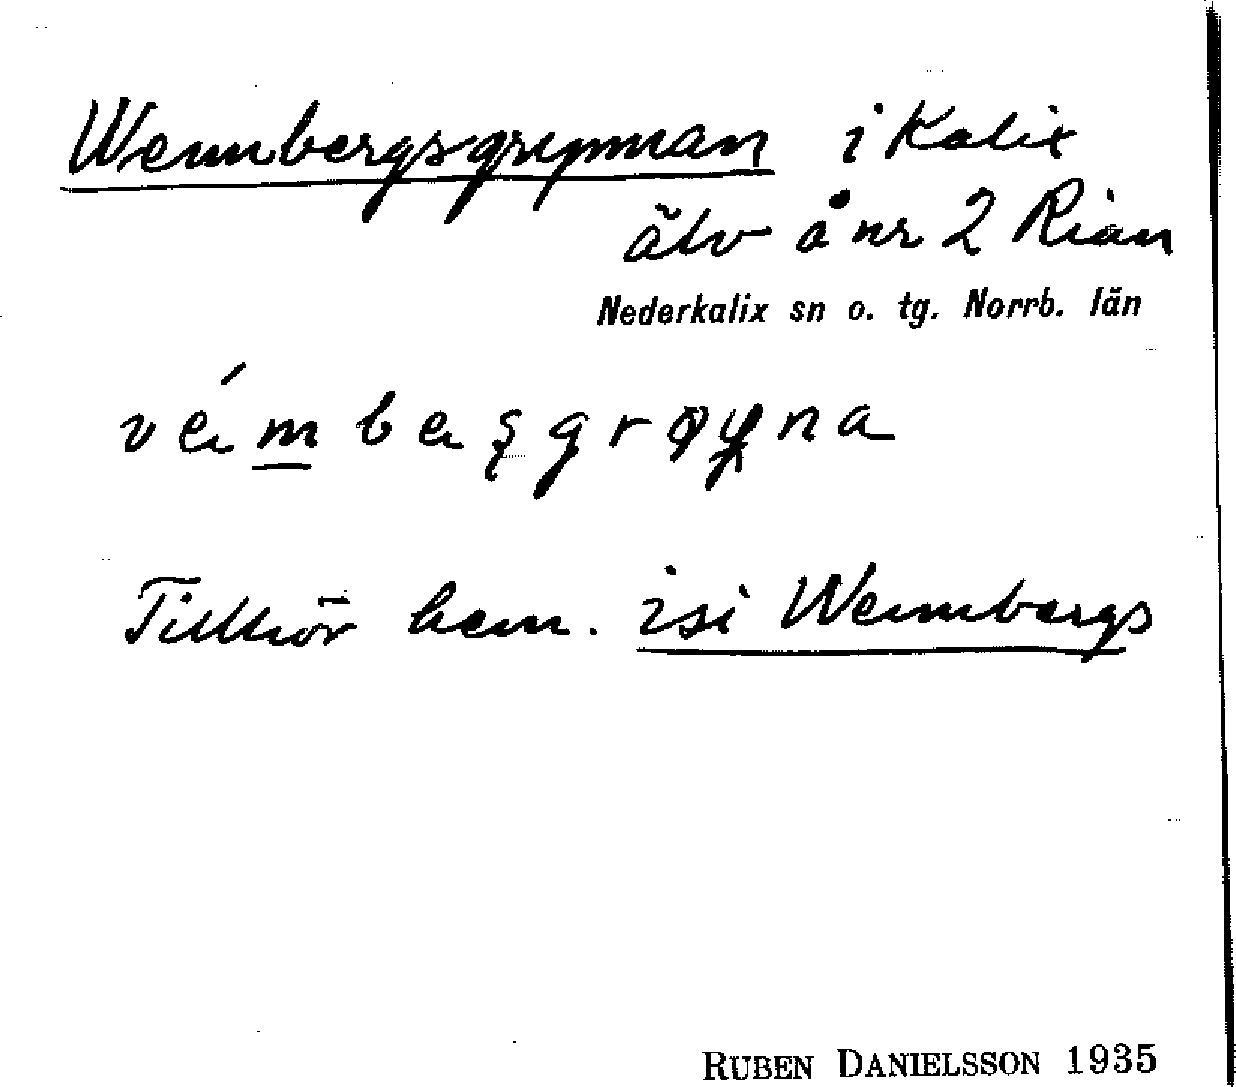 Wennbergsgrynnan i Kalix
älv å nr 2 Rian
Nederkalix sn o. tg. Norrb. län
Tillhör hem. isi Wennbergs
RUBEN DANIELSSON 1935